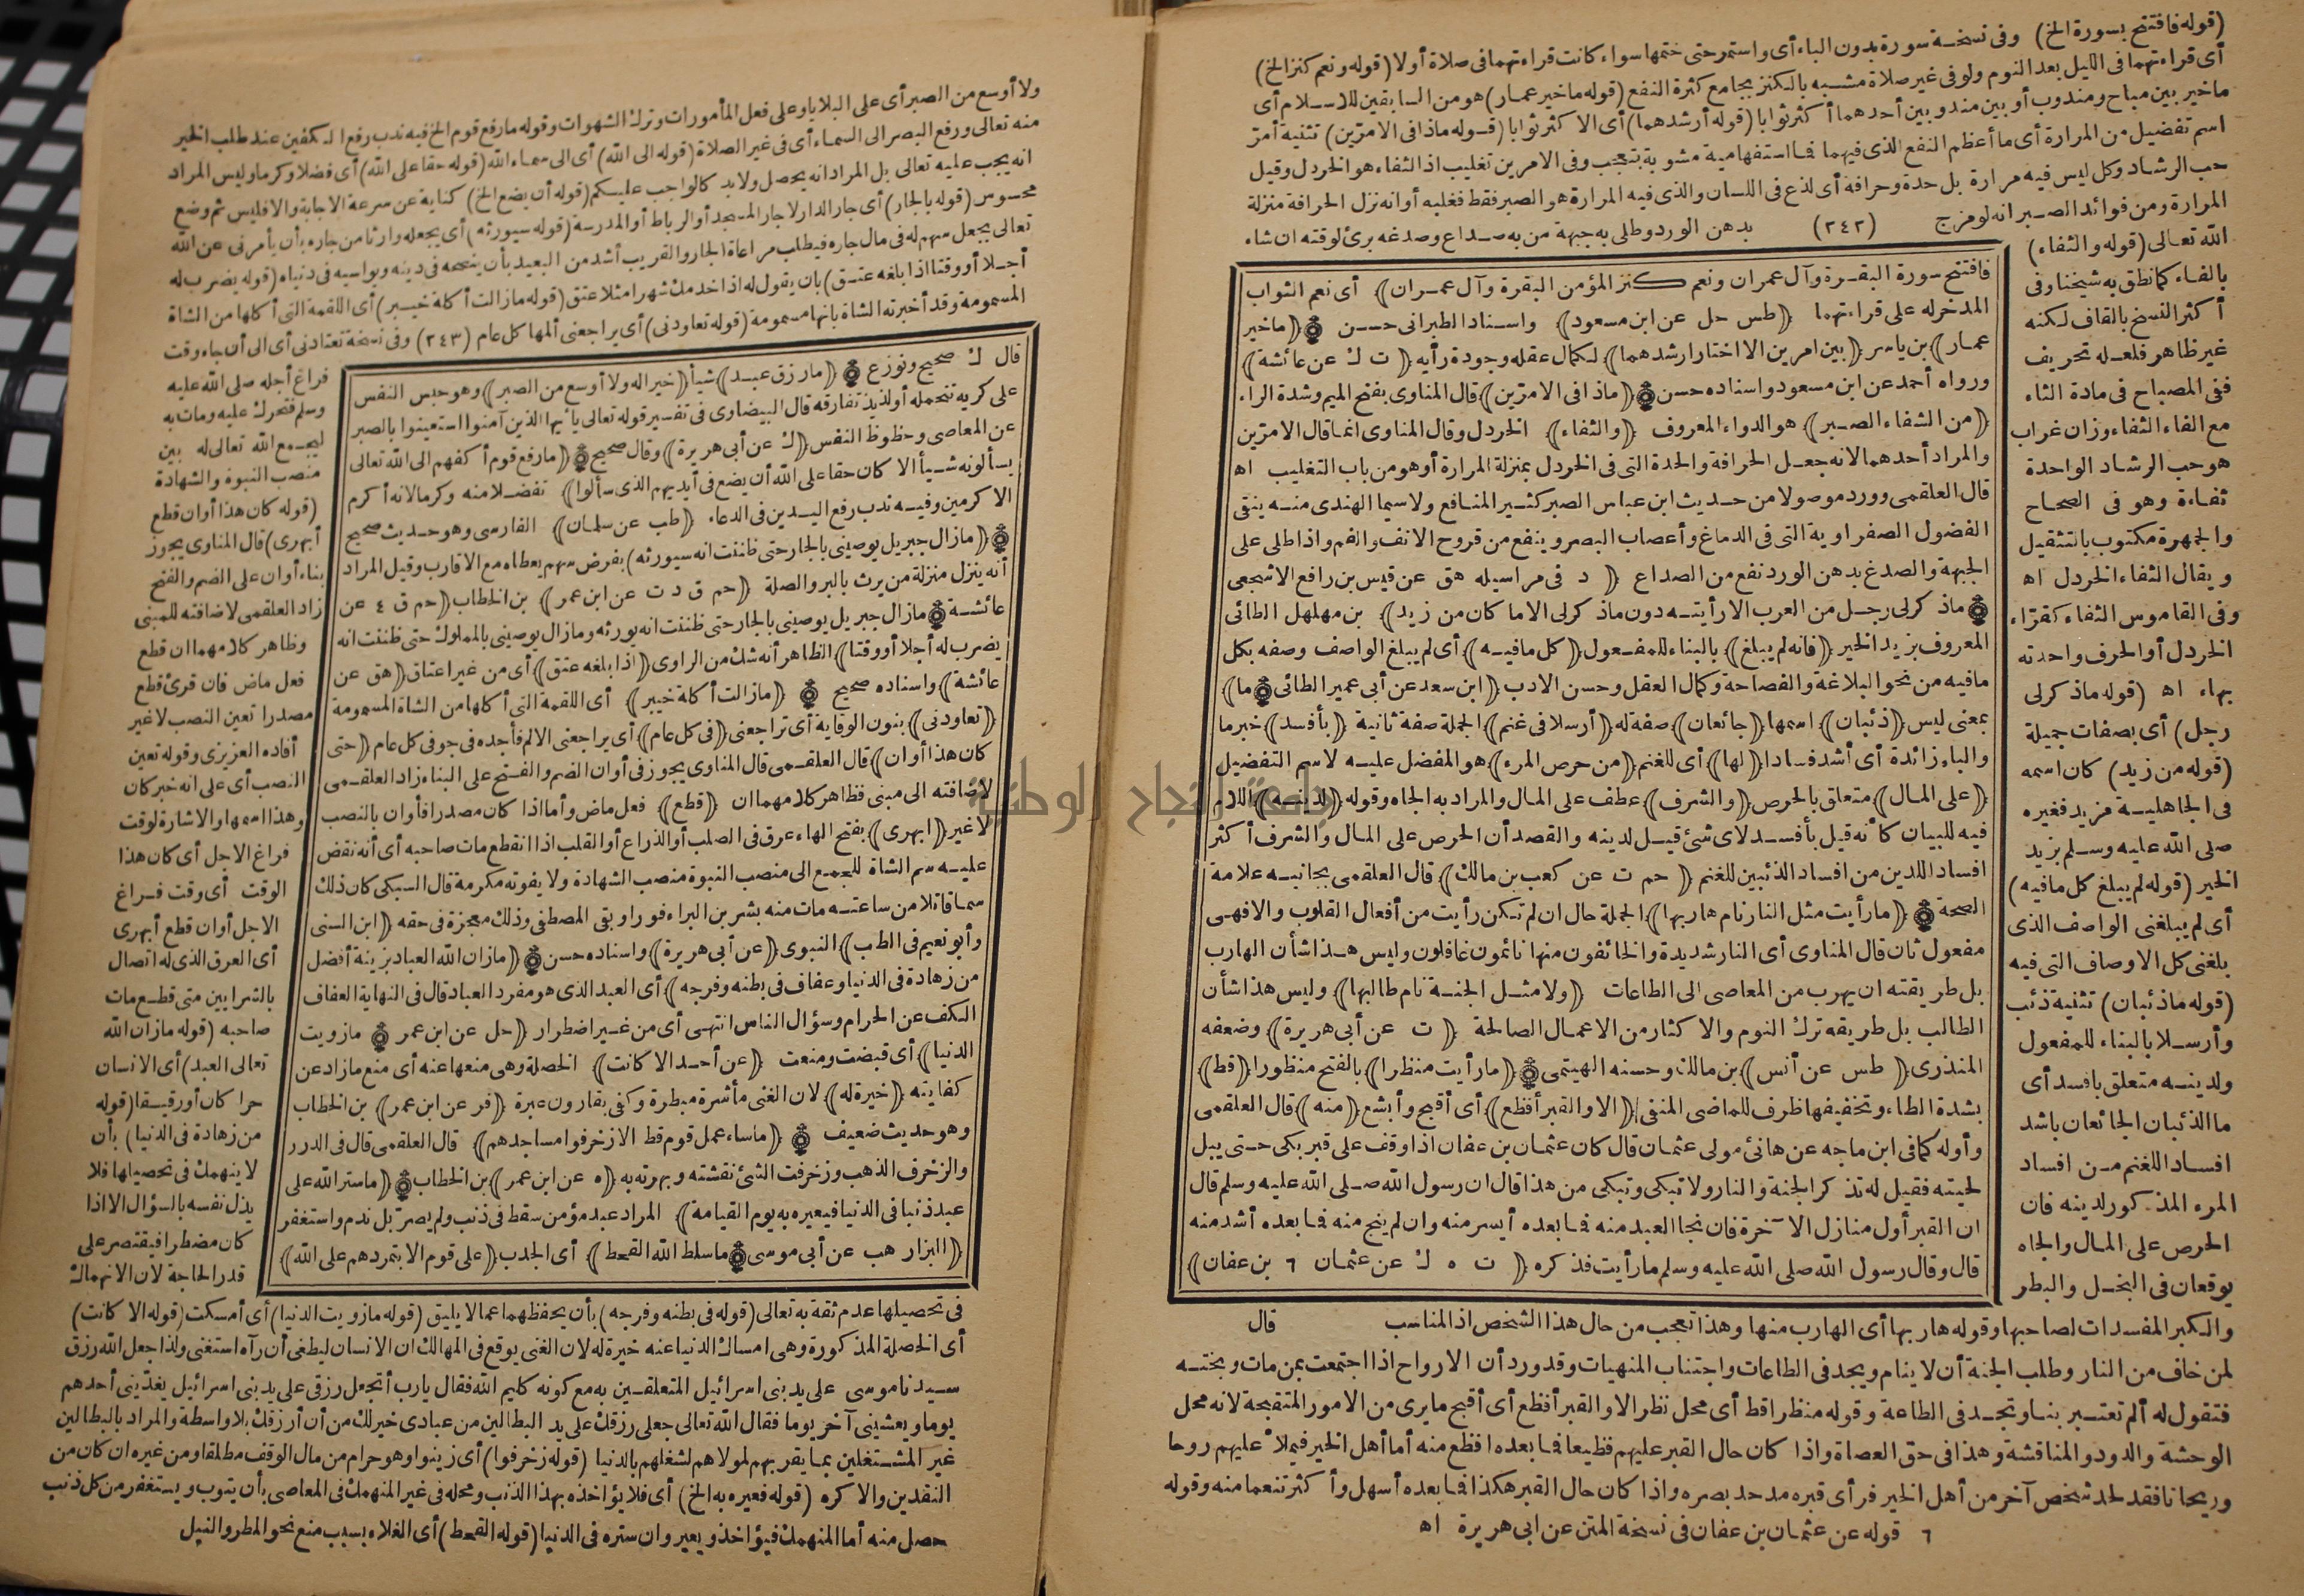 (قوله فافتتح بسورة الخ) وفى نسخة سورة بدون الباء أى واستمر حتى ختمها سواء كانت قراءتهما فى صلاة أولا (قوله ونعم كنز الخ)
أى قراءتهما فى الليل بعد النوم ولو فى غير صلاة مشبه بالكنز بجامع كثرة النفع (قوله ماخير عمار) هو من السابقين للاسلام أى
ماخير بين مباح ومندوب أو بين مندوبين أحدهما أكثر ثوابا (قوله أرشدهما) أى الاكثر ثوابا (قوله ماذا فى الامرّين) تثنية أمرّ
اسم تفضيل من المرارة أى ما أعظم النفع الذى فيهما فما استفهامية مشوبة بتعجب وفى الامرين تغليب اذ الثفاء هو الخردل وقيل
حب الرشاد وكل ليس فيه مرارة بل حدة وحرافة أى لذع فى اللسان والذى فيه المرارة هو الصبر فقط فغلبه أو انه نزل الحرافة منزلة
المرارة ومن فوائد الصبر انه لو مزج (٢٤٢) بدهن الورد وطلى به جبهة من به صداع وصدغه برئ لوقته ان شاء
الله تعالى (قوله والثفاء)
بالفاء كما نطق به شيخنا وفى
أكثر النسخ بالقاف لكنه
غير ظاهر فلعله تحريف
ففى المصباح فى مادة الثاء
مع الفاء الثفاء وزان غراب
هو حب الرشاد الواحدة
ثفاءة وهو فى الصحاح
والجمهرة مكتوب بالتثقيل
ويقال الثفاء الخردل اه
وفى القاموس الثفاء كقرّاء
الخردل أو الحرف واحدته
بهاء اه (قوله ماذكر لى
رجل) أى بصفات جميلة
(قوله من زيد) كان اسمه
فى الجاهلية مزيد فغيره
صلى الله عليه وسلم بزيد
الخير (قوله لم يبلغ كل مافيه)
أى لم يبلغنى الواصف الذى
بلغنى كل الاوصاف التى فيه
(قوله ماذئبان) تثنية ذئب
وأرسلا بالبناء للمفعول
ولدينه متعلق بافسد أى
ما الذئبان الجائعان باشد
افسادا للغنم من افساد
المرء المذكور لدينه فان
الحرص على المال والجاه
يوقعان فى البخل والبطر
فافتتح سورة البقرة وآل عمران ونعم كنز المؤمن البقرة وآل عمران) أى نعم الثواب
المدخر له على قراءتهما (طس حل عن ابن مسعود) واسناد الطبرانى حسن (ماخير
عمار) بن ياسر (بين امرين الا اختار ارشدهما) لكمال عقله وجودة رأيه (ت ك عن عائشة)
ورواه أحمد عن ابن مسعود واسناده حسن (ماذا فى الامرّين) قال المناوى بفتح الميم وشدة الراء
(من الشفاء الصبر) هو الدواء المعروف (والثفاء) الخردل وقال المناوى انما قال الامرّين
والمراد أحدهما لانه جعل الحرافة والحدة التى فى الخردل بمنزلة المرارة أو هو من باب التغليب اه
قال العلقمى وورد موصولا من حديث ابن عباس الصبر كثير المنافع ولاسيما الهندى منه ينقى
الفضول الصفراوية التى فى الدماغ وأعصاب البصر وينفع من قروح الانف والفم واذا طلى على
الجبهة والصدغ بدهن الورد نفع من الصداع (د فى مراسيله هق عن قيس بن رافع الاشجعى
ماذكر لى رجل من العرب الا رأيته دون ماذكر لى الا ما كان من زيد) بن مهلهل الطائى
المعروف بزيد الخير (فانه لم يبلغ) بالبناء للمفعول (كل مافيه) أى لم يبلغ الواصف وصفه بكل
مافيه من نحو البلاغة والفصاحة وكمال العقل وحسن الادب (ابن سعد عن أبى عمير الطائى (ما)
بمعنى ليس (ذئبان) اسمها (جائعان) صفة له (أرسلا فى غنم) الجملة صفة ثانية (بأفسد) خبر ما
والباء زائدة أى أشد فسادا (لها) أى للغنم (من حرص المرء) هو المفضل عليه لاسم التفضيل
(على المال) متعلق بالحرص (والشرف) عطف على المال والمراد به الجاه وقوله (لدينه) اللام
فيه للبيان كأنه قيل بأفسد لاى شئ قيل لدينه والقصد أن الحرص على المال والشرف أكثر
افسادا للدين من افساد الذئبين للغنم (حم ت عن كعب بن مالك) قال العلقمى بجانبه علامة
الصحة (مارأيت مثل النار نام هاربها) الجملة حال ان لم تكن رأيت من أفعال القلوب والا فهى
مفعول ثان قال المناوى أى النار شديدة والخائفون منها نائمون غافلون وليس هذا شأن الهارب
بل طريقته ان يهرب من المعاصى الى الطاعات (ولا مثل الجنة نام طالبها) وليس هذا شأن
الطالب بل طريقه ترك النوم والاكثار من الاعمال الصالحة (ت عن أبى هريرة) وضعفه
المنذرى (طس عن أنس) بن مالك وحسنه الهيتمى (مارأيت منظرا) بالفتح منظورا (قط)
بشدة الطاء وتخفيفها ظرف للماضى المنفى (الا والقبر أفظع) أى أقبح وأبشع (منه) قال العلقمى
وأوله كما فى ابن ماجه عن هانئ مولى عثمان قال كان عثمان بن عفان اذا وقف على قبر بكى حتى يبل
لحيته فقيل له تذكر الجنة والنار ولا تبكى وتبكى من هذا قال ان رسول الله صلى الله عليه وسلم قال
ان القبر أول منازل الآخرة فان نجا العبد منه فما بعده أيسر منه وان لم ينج منه فما بعده أشد منه
قال وقال رسول الله صلى الله عليه وسلم مارأيت فذكره (ت ه ك عن عثمان ٦ بن عفان)
والكبر المفسدات لصاحبها وقوله هاربها أى الهارب منها وهذا تعجب من حال هذا الشخص اذ المناسب قال
لمن خاف من النار وطلب الجنة أن لا ينام ويجد فى الطاعات واجتناب المنهيات وقد ورد أن الارواح اذا اجتمعت بمن مات وبختـه
فتقول له ألم تعتبر بنا وتجد فى الطاعة وقوله منظرا قط أى محل نظر الا والقبر أفظع أى أقبح مايرى من الامور المتقبحة لانه محل
الوحشة والدود والمناقشة وهذا فى حق العصاة واذا كان حال القبر عليهم فظيعا فما بعده افظع منه أما أهل الخير فيملأ عليهم روحا
وريحانا فقد لحد شخص آخر من أهل الخير فرأى قبره مد حد بصره واذا كان حال القبر هكذا فما بعده أسهل وأكثر تنعما منه وقوله
٦ قوله عن عثمان بن عفان فى نسخة المتن عن ابى هريرة اه
ولا أوسع من الصبر أى على البلايا وعلى فعل المأمورات وترك الشهوات وقوله مارفع قوم الخ فيه ندب رفع الكفين عند طلب الخير
منه تعالى ورفع البصر الى السماء أى فى غير الصلاة (قوله الى الله) أى الى سماء الله (قوله حقا على الله) أى فضلا وكرما وليس المراد
انه يجب عليه تعالى بل المراد انه يحصل ولابد كالواجب عليكم (قوله أن يضع الخ) كناية عن سرعة الاجابة والا فليس ثم وضع
محسوس (قوله بالجار) أى جار الدار لا جار المسجد أو الرباط أو المدرسة (قوله سيورثه) أى يجعله وارثا من جاره بأن يأمرنى عن الله
تعالى بجعل سهم له فى مال جاره فيطلب مراعاة الجار والقريب أشد من البعيد بأن ينصحه فى دينه ويواسيه فى دنياه (قوله يضرب له
أجلا أو وقتا اذا بلغه عتق) بان يقول له اذا خدمك شهرا مثلا عتق (قوله مازالت أكلة خيبر) أى اللقمة التى أكلها من الشاة
المسمومة وقد أخبرته الشاة بانها مسمومة (قوله تعاودنى) أى يراجعنى ألمها كل عام (٢٤٣) وفى نسخة تعتادنى أى الى أن جاء وقت
قال ك صحيح ونوزع (مارزق عبد) شيأ (خيرا له ولا أوسع من الصبر) وهو حبس النفس
على كريه تتحمله أو لذيذ تفارقه قال البيضاوى فى تفسير قوله تعالى يأيها الذين آمنوا استعينوا بالصبر
عن المعاصى وحظوظ النفس (ك عن أبى هريرة) وقال صحيح (مارفع قوم أكفهم الى الله تعالى
يسألونه شيأ الا كان حقا على الله أن يضع فى أيديهم الذى سألوا) تفضلا منه وكرما لانه أكرم
الاكرمين وفيه ندب رفع اليدين فى الدعاء (طب عن سلمان) الفارسى وهو حديث صحيح
(مازال جبريل يوصينى بالجار حتى ظننت انه سيورثه) بفرض سهم يعطاه مع الاقارب وقيل المراد
أنه ينزل منزلة من يرث بالبر والصلة (حم ق د ت عن ابن عمر) بن الخطاب (حم ق ٤ عن
عائشة مازال جبريل يوصينى بالجار حتى ظننت انه يورثه ومازال يوصينى بالمملوك حتى ظننت انه
يضرب له أجلا أو وقتا) الظاهر أنه شك من الراوى (اذا بلغه عتق) أى من غير اعتاق (هق عن
عائشة) واسناده صحيح (مازالت أكلة خيبر) أى اللقمة التى أكلها من الشاة المسمومة
(تعاودنى) بنون الوقاية أى تراجعنى (فى كل عام) أى يراجعنى الالم فأجده فى جوفى كل عام (حتى
كان هذا أوان) قال العلقمى قال المناوى يجوز فى أوان الضم والفتح على البناء زاد العلقمى
لاضافته الى مبنى فظاهر كلامهما ان (قطع) فعل ماض وأما اذا كان مصدرا فأوان بالنصب
لا غير (ابهرى) بفتح الهاء عرق فى الصلب أو الذراع أو القلب اذا انقطع مات صاحبه أى أنه نقض
عليه سم الشاة ليجمع الى منصب النبوة منصب الشهادة ولا يفوته مكرمة قال السبكى كان ذلك
سما قاتلا من ساعته مات منه بشر بن البراء فورا وبقى المصطفى وذلك معجزة فى حقه (ابن السنى
وأبو نعيم فى الطب) النبوى (عن أبى هريرة) واسناده حسن (مازان الله العباد بزينة أفضل
من زهادة فى الدنيا وعفاف فى بطنه وفرجه) أى العبد الذى هو مفرد العباد قال فى النهاية العفاف
الكف عن الحرام وسؤال الناس انتهى أى من غير اضطرار (حل عن ابن عمر مازويت
الدنيا) أى قبضت ومنعت (عن أحد الا كانت) الخصلة وهى منعها عنه أى منع مازاد عن
كفايته (خيرة له) لان الغنى مأشرة مبطرة وكفى بقارون عبرة (فر عن ابن عمر) بن الخطاب
وهو حديث ضعيف (ماساء عمل قوم قط الا زخرفوا مساجدهم) قال العلقمى قال فى الدرر
والزخرف الذهب وزخرفت الشئ نقشته وبهرته به (ه عن ابن عمر) بن الخطاب (ماستر الله على
عبد ذنبا فى الدنيا فيعيره به يوم القيامة) المراد عبد مؤمن سقط فى ذنب ولم يصرّ بل ندم واستغفر
(البزار هب عن أبى موسى ماسلط الله القحط) أى الجدب (على قوم الا بتمردهم على الله)
فراغ أجله صلى الله عليه
وسلم فتحرك عليه ومات به
ليجمع الله تعالى له بين
منصب النبوة والشهادة
(قوله كان هذا أوان قطع
أبهرى) قال المناوى يجوز
بناء أوان على الضم والفتح
زاد العلقمى لاضافته للمبنى
وظاهر كلامهما ان قطع
فعل ماض فان قرئ قطع
مصدرا تعين النصب لا غير
أفاده العزيزى وقوله تعين
النصب أى على انه خبر كان
وهذا اسمها والاشارة لوقت
فراغ الاجل أى كان هذا
الوقت أى وقت فراغ
الاجل أوان قطع أبهرى
أى العرق الذى له اتصال
بالشرايين متى قطع مات
صاحبه (قوله مازان الله
تعالى العبد) أى الانسان
حرا كان أو رقيقا (قوله
من زهادة فى الدنيا) بأن
لا ينهمك فى تحصيلها فلا
يذل نفسه بالسؤال الا اذا
كان مضطرا فيقتصر على
قدر الحاجة لان الانهماك
فى تحصيلها عدم ثقة به تعالى (قوله فى بطنه وفرجه) بأن يحفظهما عما لا يليق (قوله مازويت الدنيا) أى أمسكت (قوله الا كانت)
أى الخصلة المذكورة وهى امساك الدنيا عنه خيرة له لان الغنى يوقع فى المهالك ان الانسان ليطغى أن رآه استغنى ولذا جعل الله رزق
سيدنا موسى على يد بنى اسرائيل المتعلقين به مع كونه كليم الله فقال يارب أتجعل رزقى على يد بنى اسرائيل يغدّينى أحدهم
يوما ويعشينى آخر يوما فقال الله تعالى جعلى رزقك على يد البطالين من عبادى خير لك من أن أرزقك بلا واسطة والمراد بالبطالين
غير المشتغلين بما يقربهم لمولاهم لشغلهم بالدنيا (قوله زخرفوا) أى زينوا وهو حرام من مال الوقف مطلقا ومن غيره ان كان من
النقدين والا كره (قوله فعيره به الخ) أى فلا يؤاخذه بهذا الذنب ومحله فى غير المنهمك فى المعاصى بأن يتوب ويستغفر من كل ذنب
حصل منه أما المنهمك فيؤاخذ ويعير وان ستره فى الدنيا (قوله القحط) أى الغلاء بسبب منع نحو المطر والنيل
جامعة النجاح الوطنية